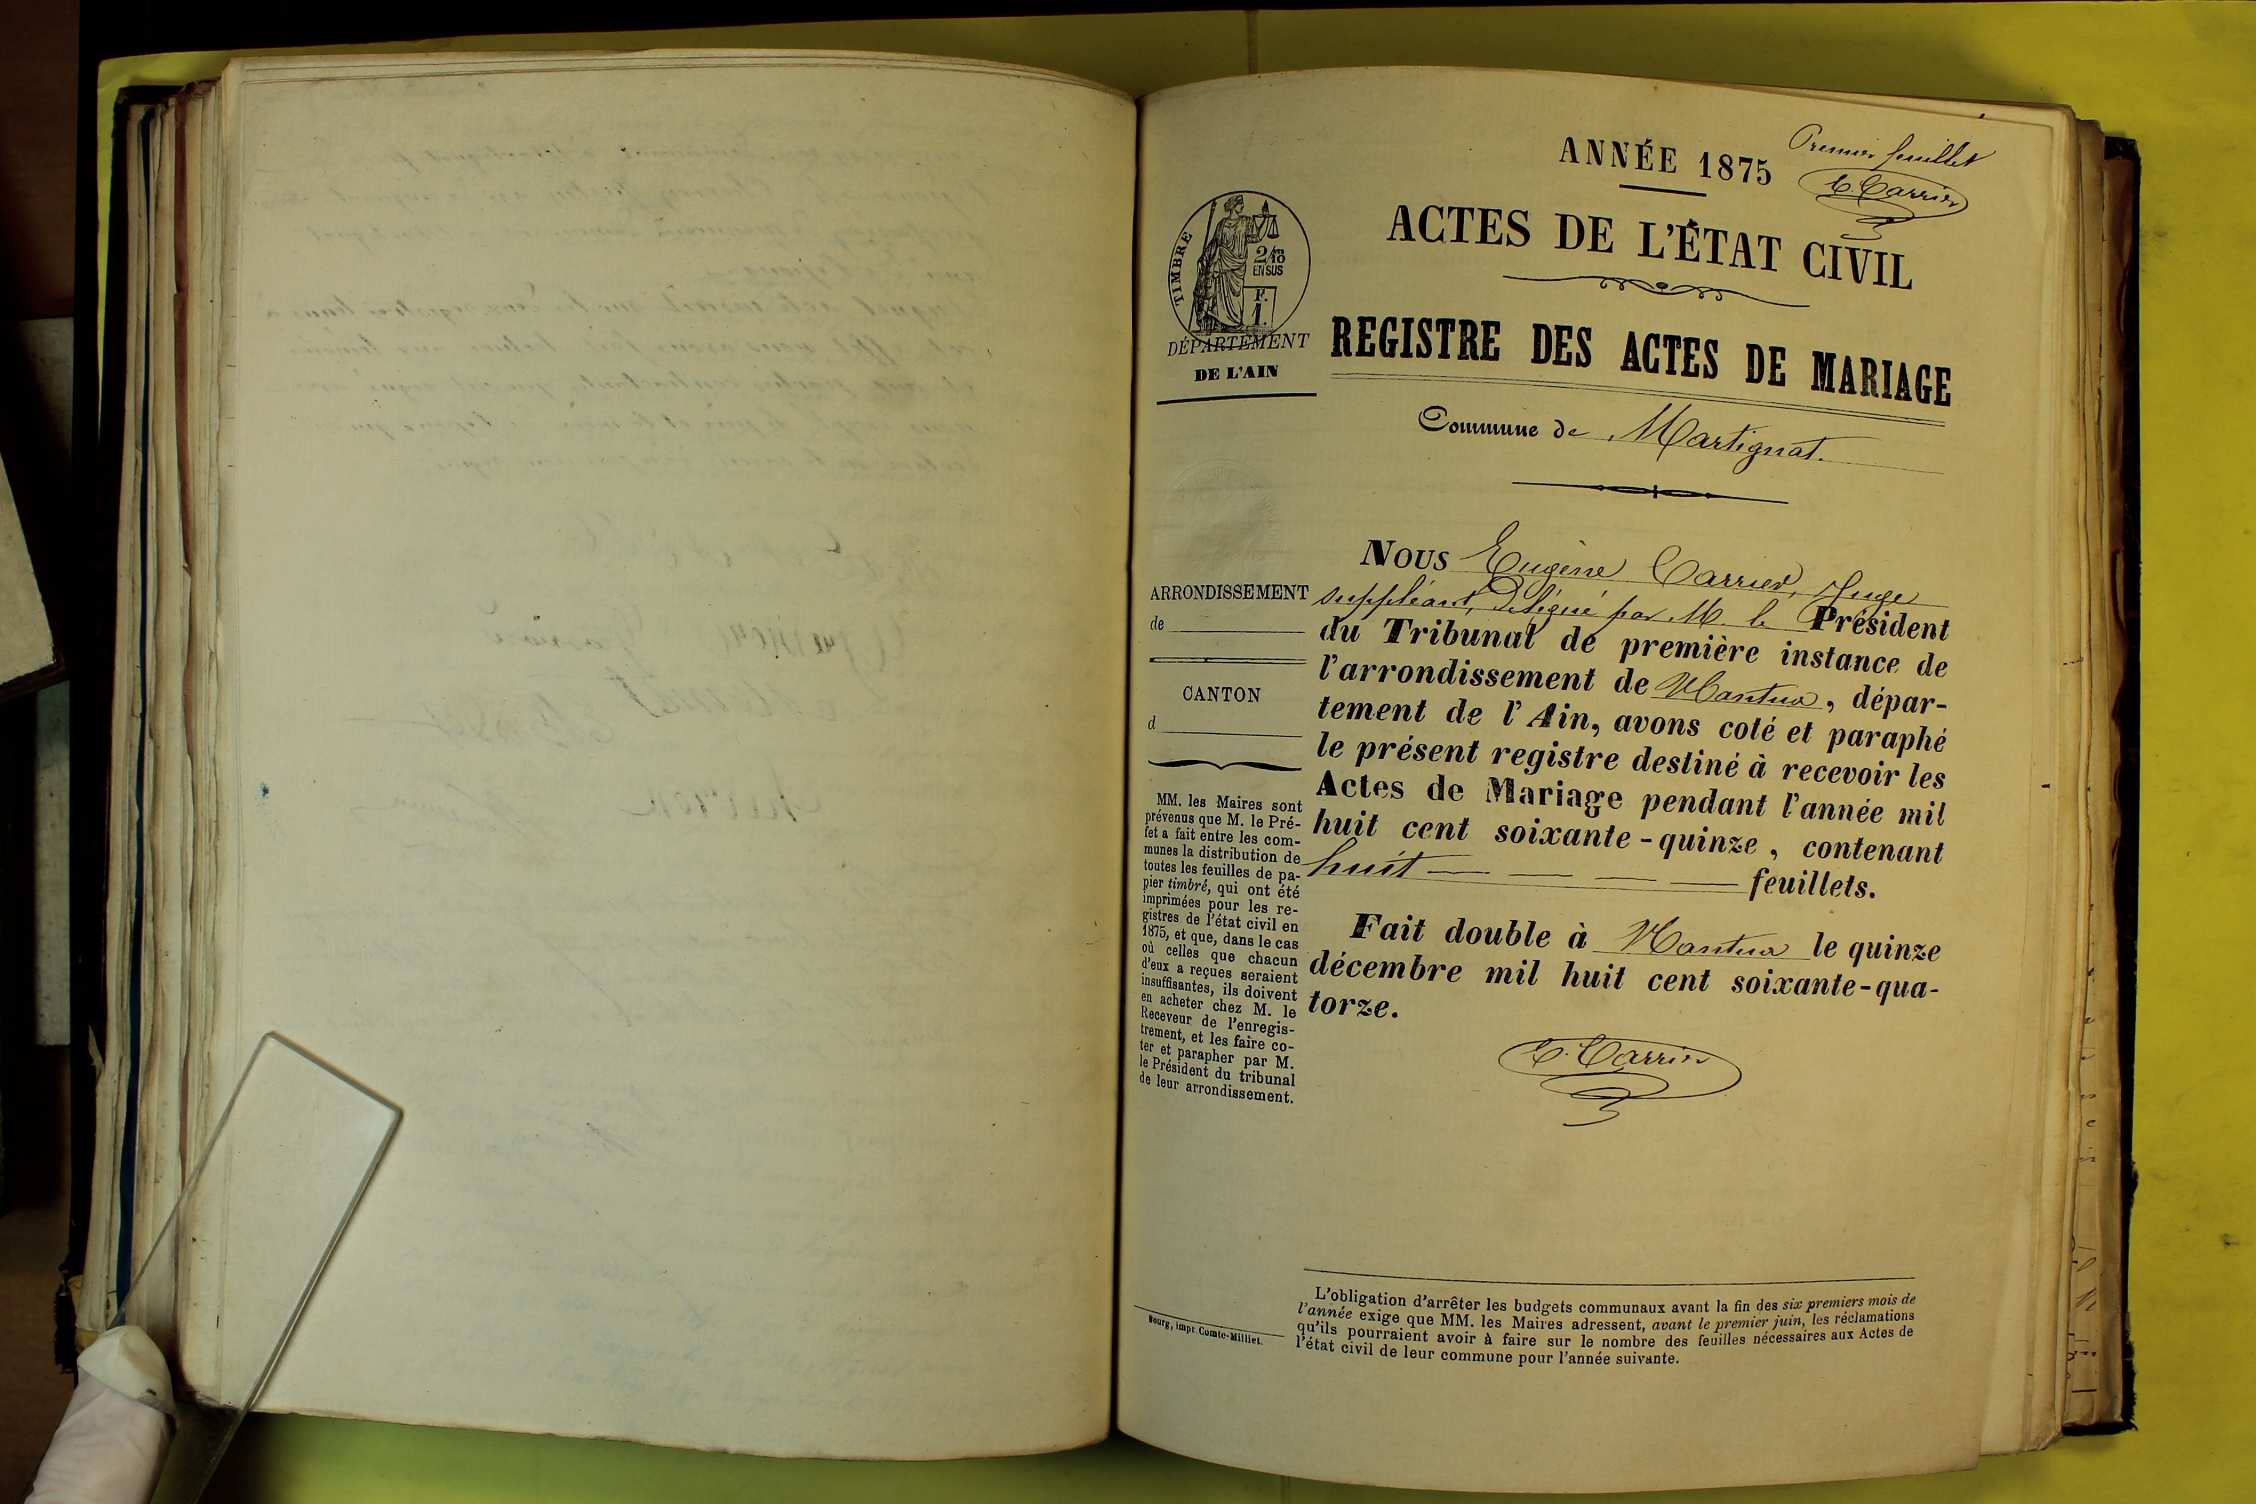 Premier feuillet
E. Carrier
ANNÉE 1875
ACTES DE L'ÉTAT CIVIL
TIMBRE
2/10
EN SUS
F.
1.
DÉPARTEMENT
DE L'AIN
REGISTRE DES ACTES DE MARIAGE
Commune de Martignat.
ARRONDISSEMENT
de
CANTON
d
MM. les Maires sont
prévenus que M. le Pré-
fet a fait entre les com-
munes la distribution de
toutes les feuilles de pa-
pier timbré, qui ont été
imprimées pour les re-
gistres de l'état civil en
1875, et que, dans le cas
où celles que chacun
d'eux a reçues seraient
insuffisantes, ils doivent
en acheter chez M. le
Receveur de l'enregis-
trement, et les faire co-
ter et parapher par M.
le Président du tribunal
de leur arrondissement.
Nous Eugène Carrier, Juge
suppléant, Délégué par M. le Président
du Tribunal de première instance de
l'arrondissement de Nantua, dépar-
tement de l'Ain, avons coté et paraphé
le présent registre destiné à recevoir les
Actes de Mariage pendant l'année mil
huit cent soixante-quinze, contenant
huit — — — — feuillets.
Fait double à Nantua le quinze
décembre mil huit cent soixante-qua-
torze.
E. Carrier
Bourg, impr. Comte-Milliet.
L'obligation d'arrêter les budgets communaux avant la fin des six premiers mois de
l'année exige que MM. les Maires adressent, avant le premier juin, les réclamations
qu'ils pourraient avoir à faire sur le nombre des feuilles nécessaires aux Actes de
l'état civil de leur commune pour l'année suivante.